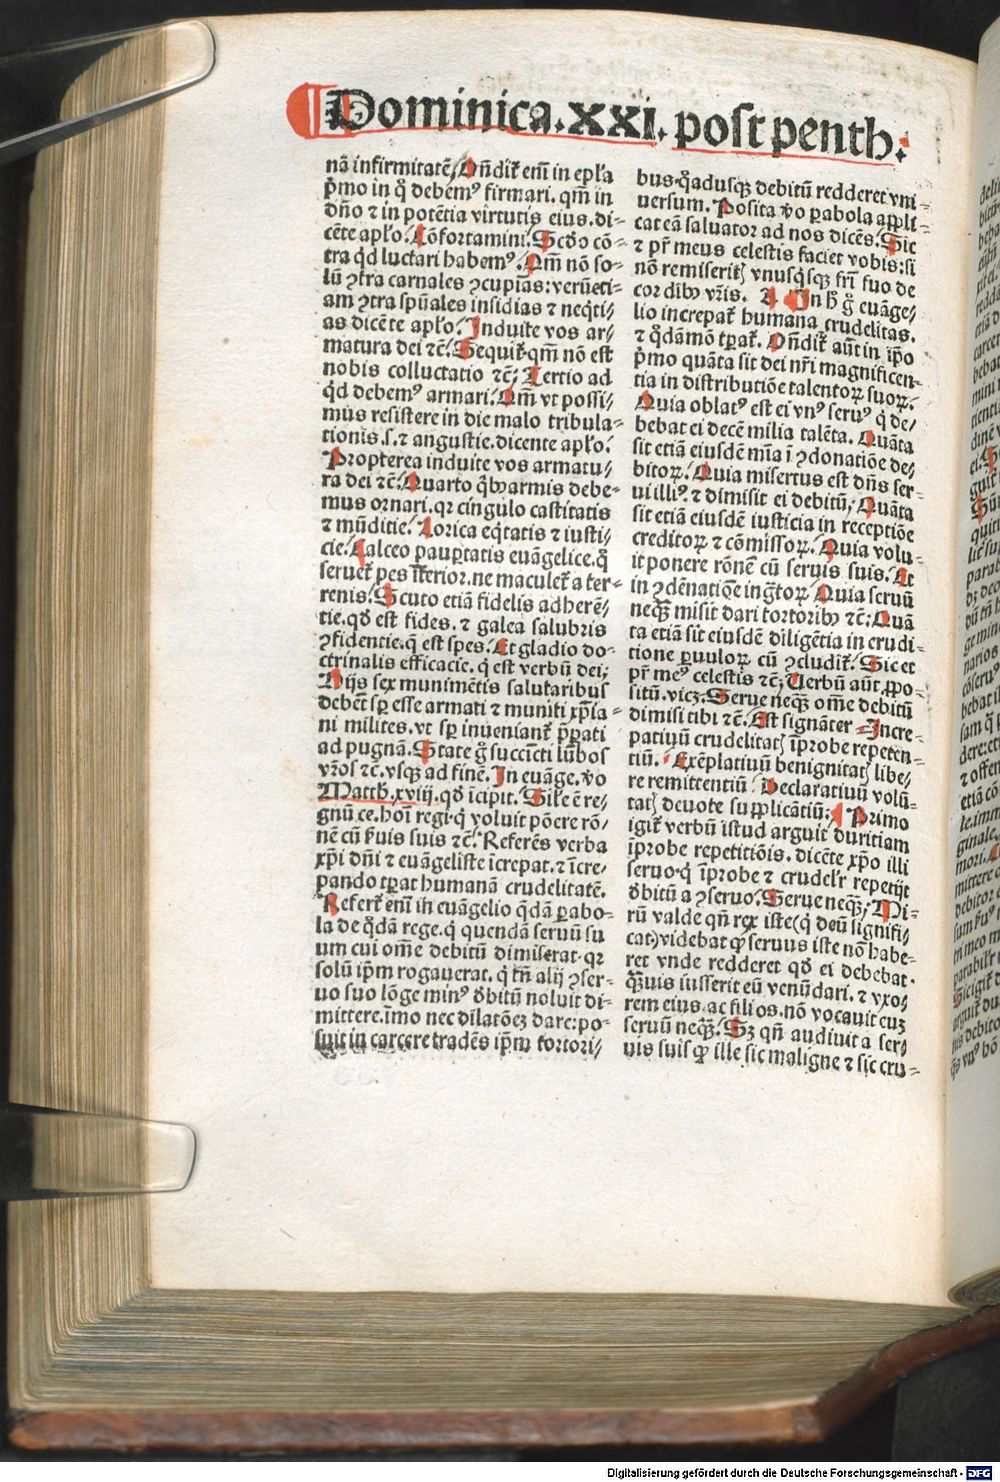 Dominica.XXI.post penth.
nā infirmitatē. Oñdit̃ em̄ in epl̃a
p̃mo in q̊ debemꝰ firmari. qm̄ in
dño ⁊ in potētia virtutis eius. di⸗
cēte apl̃o. Cōfortamini. Scd̃o cō⸗
tra q̊d luctari habemꝰ. Qm̄ nō so⸗
lū ꝯtra carnales ꝯcupīas: verūeti⸗
am ꝯtra sp̄uales insidias ⁊ neq̄ti⸗
as dicēte apl̃o. Induite vos ar⸗
matura dei ⁊c̄. Sequit̃ qm̄ nō est
nobis colluctatio ⁊c̄; Tertio ad
q̊d debemꝰ armari. Qm̄ vt possi⸗
mus resistere in die malo tribula⸗
tionis.s.⁊ angustie. dicente apl̃o.
Propterea induite vos armatu⸗
ra dei ⁊c̄. Quarto q̄ib armis debe⸗
mus ornari. qr cingulo castitatis
⁊ mūditie. Lorica eq̄tatis ⁊ iusti⸗
cie. Calceo paup̄tatis euāgelice. q̊
seruet̃ pes īterior. ne maculet̃ a ter⸗
renis. Scuto etiā fidelis adherē⸗
tie. qd̃ est fides. ⁊ galea salubris
ꝯfidentie. q̄ est spes. Et gladio do⸗
ctrinalis efficacie. q̄ est verbū dei;
Hijs sex munimētis salutaribus
debēt sp̄ esse armati ⁊ muniti xp̄ia⸗
ni milites. vt sp̄ inueniant̃ p̄parati
ad pugnā. State g̊ succīcti lūbos
vr̃os ⁊c̄. vsq; ad finē. In euāge. v̊o
Matth.xviij. qd̃ īcipit. Sil̃e ē re⸗
gnū ce. hoī regi. q̄ voluit pōere rō⸗
nē cū s̃uis suis ⁊c̄. Referēs verba
xp̄i dñi ⁊ euāgeliste īcrepat. ⁊ īcre⸗
pando tr̄at humanā crudelitatē.
Refert̃ eni in euāgelio q̊dā parabo⸗
la de q̊dā rege. q̄ quendā seruū su
um cui om̄e debitū dimiserat. qr
solū ip̄m rogauerat. q̄ tn̄ alij ꝯser⸗
uo suo lōge minꝰ d̃bitū noluit di⸗
mittere. īmo nec dilatōeꝫ dare: po⸗
suit in carcere tradēs ip̄m tortori⸗
bus. q̊adusqꝫ debitū redderet vni⸗
uersum. Posita v̊o parabola appli⸗
cat eā saluator ad nos dicēs. Sic
⁊ pr̄ meus celestis faciet vobis: si
nō remiseritꝭ vnusq̊sqꝫ fr̄i suo de
cordibꝰ vr̄is. In h̊ g̊ euāge⸗
lio increpat̃ humana crudelitas.
⁊ q̊dāmō tr̄at̃. Oñdit̃ aūt in ip̄o
p̃mo quāta sit dei nr̄i magnificen⸗
tia in distributiōe talentoꝝ suoꝝ.
Quia oblatꝰ est ei vnꝰ seruꝰ q̄ de⸗
bebat ei decē milia talēta. Quāta
sit etiā eiusdē mīa ī ꝯdonatiōe de⸗
bitoꝝ. Quia misertus est dñs ser⸗
ui illiꝰ. ⁊ dimisit ei debitū; Quāta
sit etiā eiusdē iusticia in receptiōe
creditoꝝ ⁊ cōmissoꝝ. Quia volu⸗
it ponere rōnē cū seruis suis. Et
in ꝯdēnatiōe ingr̄toꝝ. Quia seruū
neq̄ꝫ misit dari tortoribꝰ ⁊c̄: Quā
ta etiā sit eiusdē diligētia in erudi⸗
tione paruuloꝝ cū ꝯcludit̃. Sic et
pr̄ meꝰ celestis ⁊c̄; Verbū aūt ꝓpo⸗
sitū. vicꝫ. Serue neq̄ꝫ om̄e debitū
dimisi tibi ⁊c̄. Est signāter Incre⸗
patiuū crudelitatꝭ īprobe repeten⸗
tiū. Exēplatiuū benignitatꝭ libe⸗
re remittentiū Declaratiuū volū⸗
tatꝭ deuote supplicātiū. Primo
igit̃ verbū istud arguit duritiam
īprobe repetitiōis. dicēte xp̄o illi
seruo. q̄ īprobe ⁊ crudel̃r repetijt
d̃bitū a ꝯseruo. Serue neq̄ꝫ; Mi⸗
rū valde qn̄ rex iste (q̄ deū signifi⸗
cat) videbat ꝙ seruus iste nō habe⸗
ret vnde redderet qd̃ ei debebat.
Q̄uis iusserit eū venūdari. ⁊ vxo⸗
rem eius. ac filios. nō vocauit euꝫ
seruū neq̄ꝫ. Sꝫ qn̄ audiuit a ser⸗
uis suis ꝙ ille sic maligne ⁊ sic cru⸗
Digitalisierung gefördert durch die Deutsche Forschungsgemeinschaft - DFG